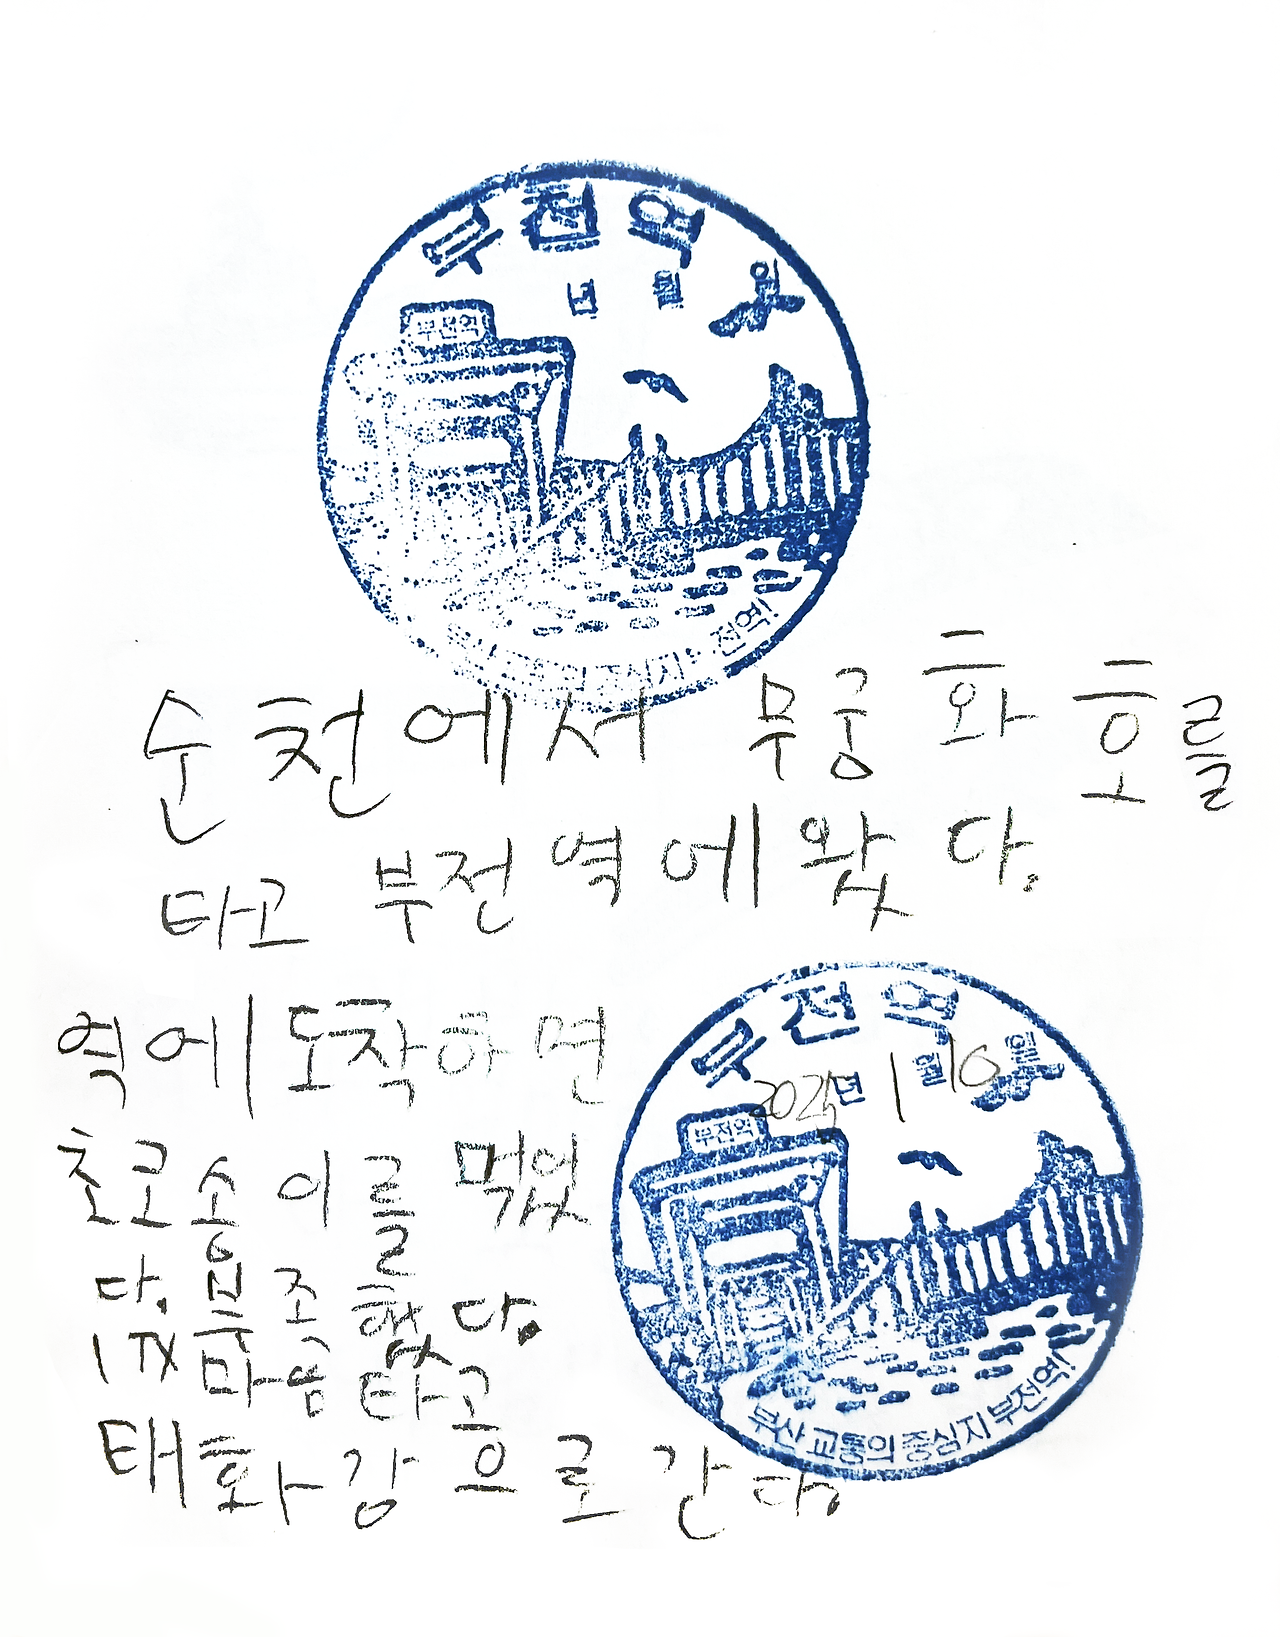 부전역
년 월 일
부전역
전역!
순천에서 무궁화호를
타고 부전역에 왔다.
부전역
2025년 1월 10일
부전역
부산 교통의 중심지 부전역!
역에 도착하면
초코송이를 먹었
다. 부족했다.
ITX 마음 타고
태화강으로 간다.